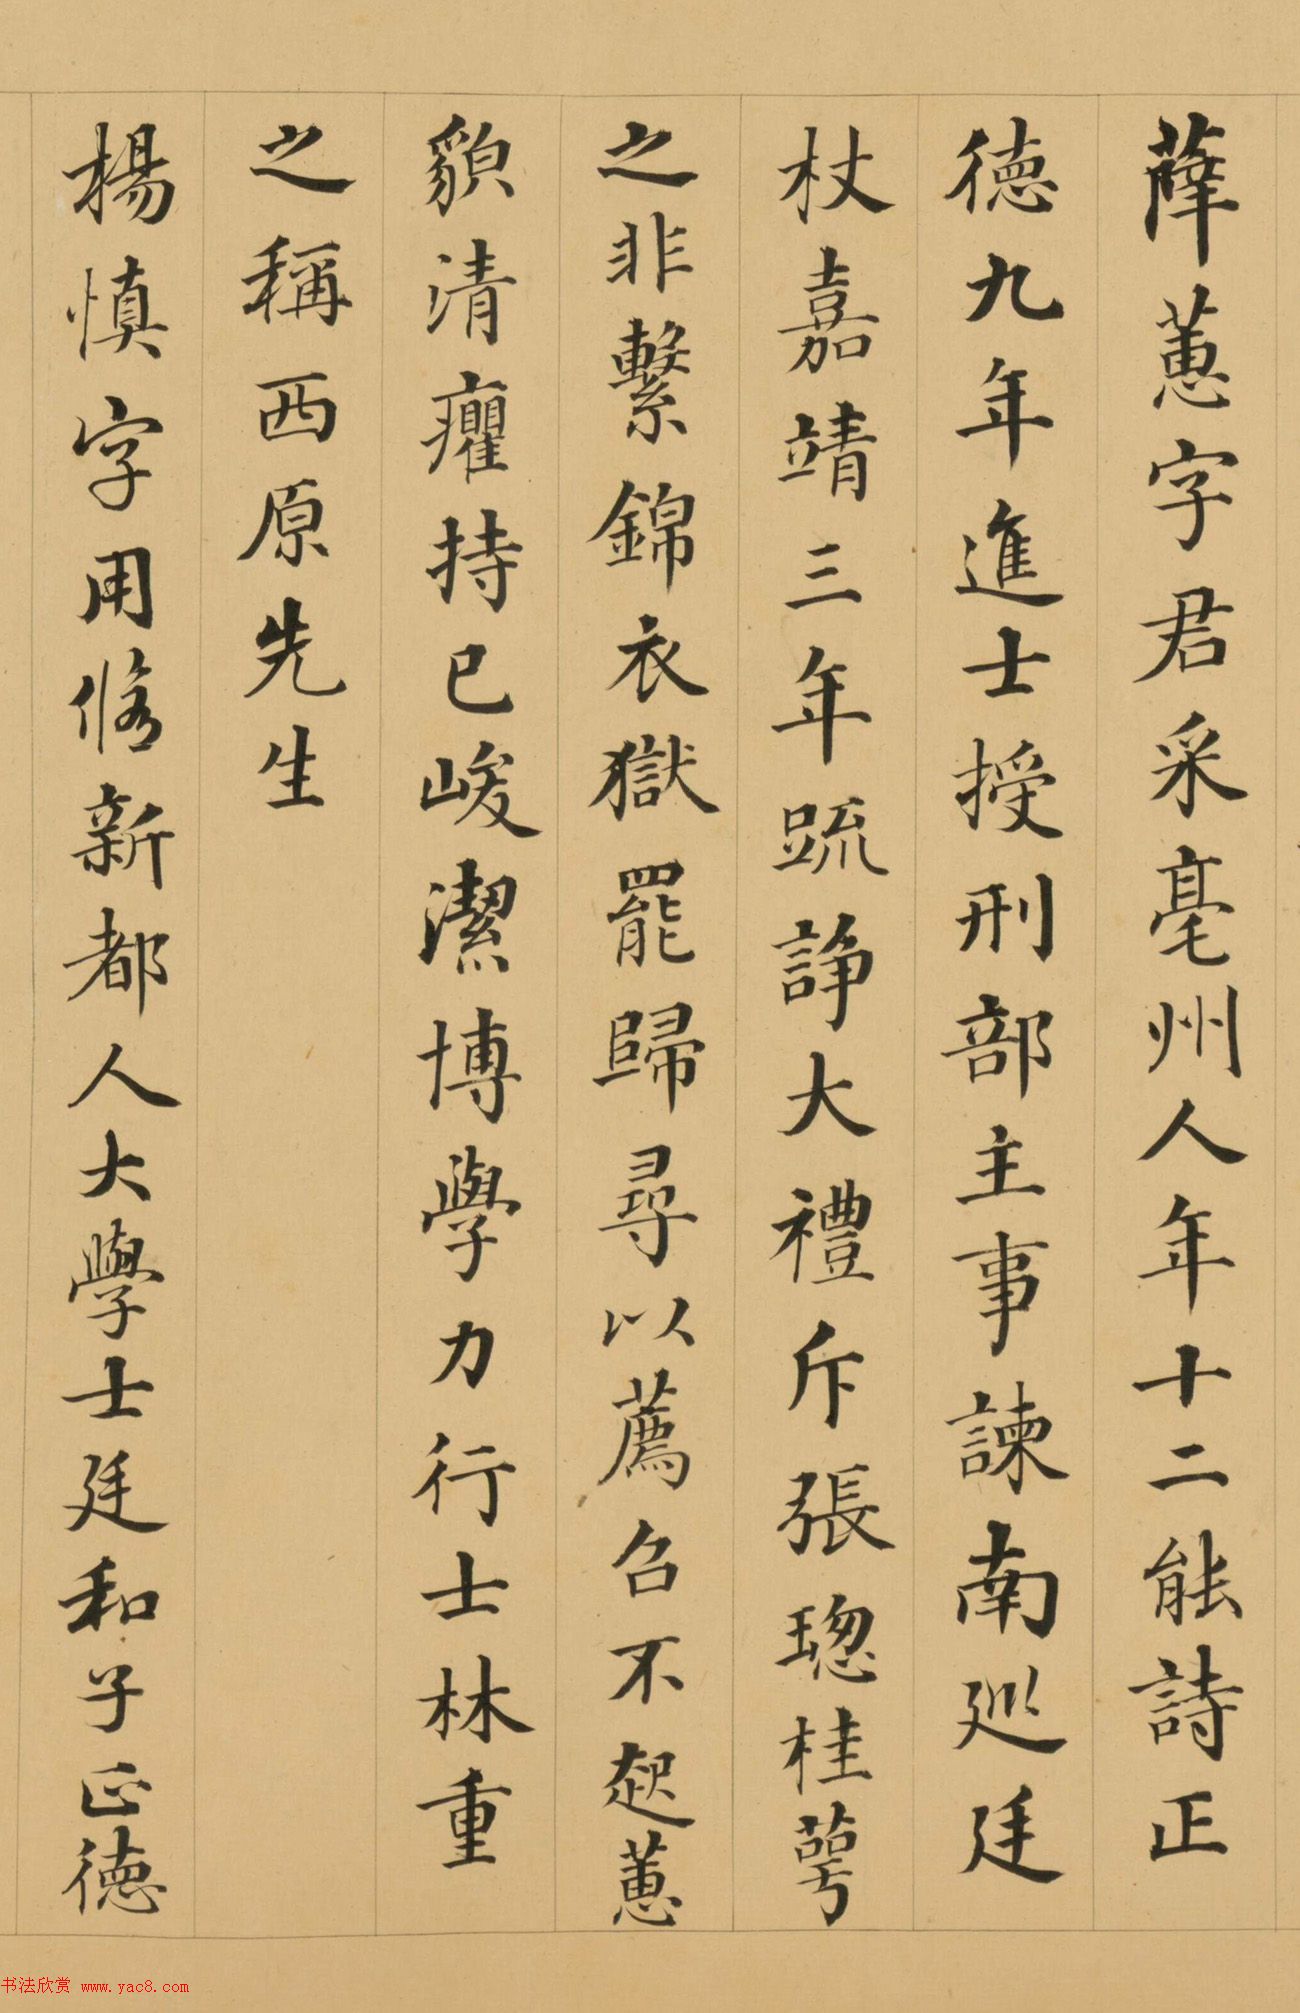 薛蕙字君采亳州人年十二能詩正
德九年進士授刑部主事諫南巡廷
杖嘉靖三年疏諍大禮斥張璁桂萼
之非繫錦衣獄罷歸尋以薦召不起蕙
貌清癯持己峻潔博學力行士林重
之稱西原先生
楊慎字用脩新都人大學士廷和子正德
书法欣赏 www.yac8.com